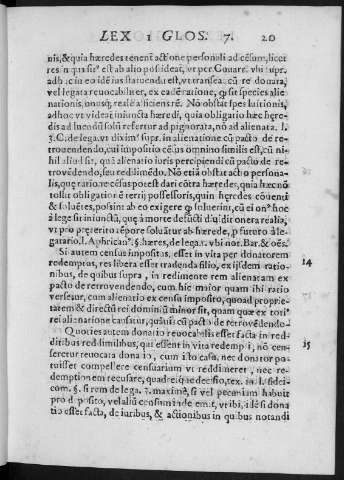 LEX 1 GLOS. 7. 20
nis, & quia hæredes tenent actione personali ad cēsum, licet
res in qua sit est ab alio possideat, vt per Couarr. vbi supr.
adhuc in eo idē ius statuendū est, vt transeat cū re donata,
vel legata reuocabiliter, ex ea dē ratione, sit species alie
nationis, onusq; reale aſiciens rē. Nō obstat spes luitionis,
adhoc vt videat iniuncta hæredi, quia obligatio hæc hęre-
dis ad luendū solū refertur ad pignorata, nō ad alienata. l.
3. C. de lega. vt diximꝰ supr. in alienatione cū pacto de re-
trouendendo, cui impositio cēsus omnino similis est, cū ni-
hil aliud sit, quā alienatio iuris percipiendi cū pacto de re-
trouendēdo, seu redimēdo. Nō etiā obstat actio persona-
lis, que ratione cēsus potest dari cōtra hæredes, quia hæc nō
tollit obligationē tertij possessoris, quin hęredes cōuenti
& soluētes, possint ab eo exigere soluerint, cū ei onꝰ hoc
à lege sit iniunctū, quę à morte defūcti diuidit onera realia,
vt pro pręterito tēpore soluātur ab hærede, p̱ futuro à le-
gatario. l. Aphricanꝰ. §. hæres, de lega. 1. vbi not. Bar. & oēs.
Si autem census impositus, esset in vita per donatorem 14
redemptus, res libera esset tradenda filio, ex ijsdem ratio-
nibus, de quibus supra, in redimente rem alienatam ex
pacto de retrovendendo, cum hic maior quam ibi ratio
versetur, cum alienatio ex censu imposito, quoad proprie-
tatem & directū rei dominiū minor sit, quam quæ ex toti
rei alienatione causatur, quāuis cū pacto de retrovēdēdo
Quoties autem donatio reuocabilis esset facta in red- 15
ditibus redimilibus, qui essent in vita redempti, nō cen-
seretur reuocata donatio, cum isto casu, nec donator po-
tuisset compellere censuarium vt redimeret, nec re-
demptionem recusare, quadret quę decisio, tex. in l. fidei-
com. §. si rem de lega. 3. maximè, si vel pecuniam habuit
pro deposito, vel aliū censum inde emit, vt ibi, idē si dona
tio esset facta, de iuribus, & actionibus in quibus notandi